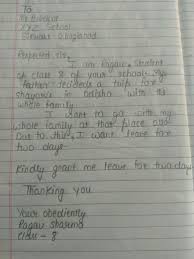 To
XYZ School
Respected sir,
I am Raguv, student
of class 8 of your school. My
father decided a trip for
in Odisha with its
whole family.
I want to go with my
whole family at that place and
due to this, I want leave for
two days.
Kindly grant me leave for two day
Thanking you
Your obediently
Raguv sharma
Class - 8